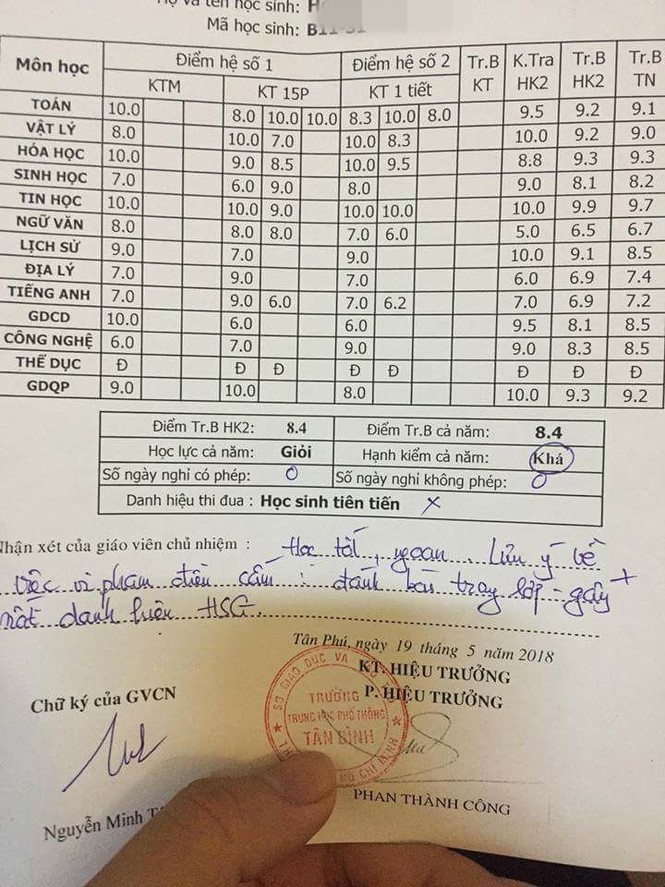 Họ và tên học sinh: H
Mã học sinh: B11-31
Môn học Điểm hệ số 1 Điểm hệ số 2 Tr.B KT K.Tra HK2 Tr.B HK2 Tr.B TN
KTM KT 15P KT 1 tiết
TOÁN 10.0 8.0 10.0 10.0 8.3 10.0 8.0 9.5 9.2 9.1
VẬT LÝ 8.0 10.0 7.0 10.0 8.3 10.0 9.2 9.0
HÓA HỌC 10.0 9.0 8.5 10.0 9.5 8.8 9.3 9.3
SINH HỌC 7.0 6.0 9.0 8.0 9.0 8.1 8.2
TIN HỌC 10.0 10.0 9.0 10.0 10.0 10.0 9.9 9.7
NGỮ VĂN 8.0 8.0 8.0 7.0 6.0 5.0 6.5 6.7
LỊCH SỬ 9.0 7.0 9.0 10.0 9.1 8.5
ĐỊA LÝ 7.0 9.0 7.0 6.0 6.9 7.4
TIẾNG ANH 7.0 9.0 6.0 7.0 6.2 7.0 6.9 7.2
GDCD 10.0 6.0 6.0 9.5 8.1 8.5
CÔNG NGHỆ 6.0 7.0 9.0 9.0 8.3 8.5
THỂ DỤC Đ Đ Đ Đ Đ Đ Đ Đ
GDQP 9.0 10.0 8.0 10.0 9.3 9.2
Điểm Tr.B HK2: 8.4 Điểm Tr.B cả năm: 8.4
Học lực cả năm: Giỏi Hạnh kiểm cả năm: Khá
Số ngày nghỉ có phép: 0 Số ngày nghỉ không phép: 0
Danh hiệu thi đua : Học sinh tiên tiến x
Nhận xét của giáo viên chủ nhiệm : Học tốt, ngoan. Lưu ý về
việc vi phạm điều cấm : đánh bài trong lớp - gây
mất danh hiệu HSG.
Tân Phú, ngày 19 tháng 5 năm 2018
KT. HIỆU TRƯỞNG
P. HIỆU TRƯỞNG
Chữ ký của GVCN
SỞ GIÁO DỤC VÀ
TRƯỜNG
TRUNG HỌC PHỔ THÔNG
TÂN BÌNH
PHAN THÀNH CÔNG
Nguyễn Minh